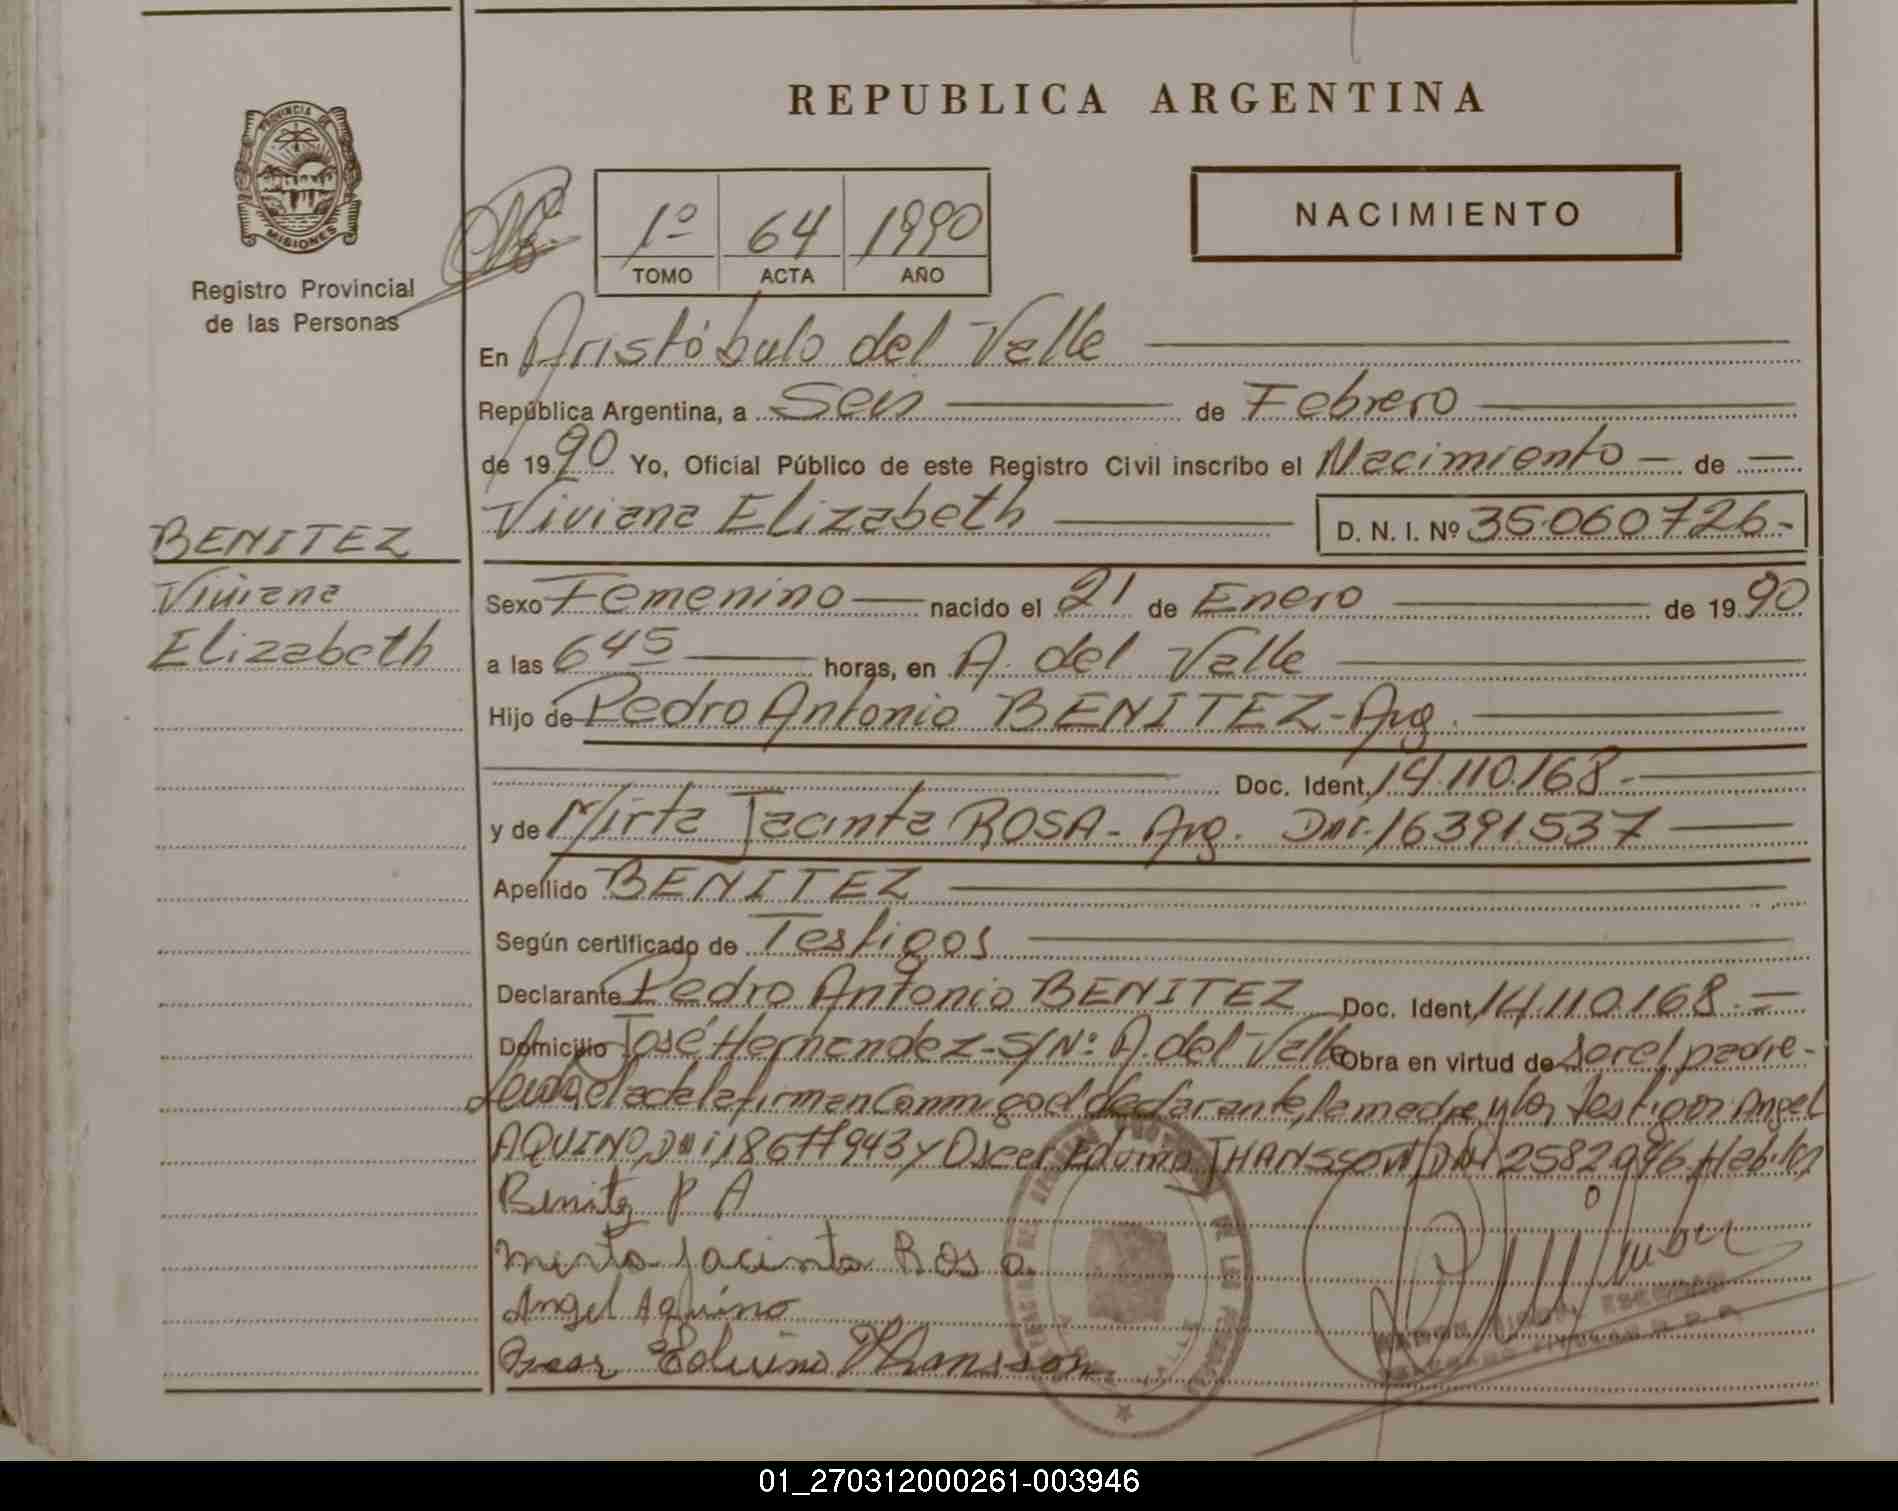 REPUBLICA ARGENTINA
PROVINCIA DE
MISIONES
Registro Provincial
de las Personas
1º 64 1990
TOMO ACTA AÑO
NACIMIENTO
En Aristóbulo del Valle
República Argentina, a Seis de Febrero
de 1990 Yo, Oficial Público de este Registro Civil inscribo el Nacimiento de
Viviana Elizabeth D. N. I. Nº 35.060.726.-
BENITEZ
Viviana
Elizabeth
Sexo Femenino nacido el 21 de Enero de 1990
a las 645 horas, en A. del Valle
Hijo de Pedro Antonio BENITEZ - Arg.
Doc. Ident. 14.110.168.-
y de Mirta Jacinta ROSA - Arg. DNI. 16391.537
Apellido BENITEZ
Según certificado de Testigos
Declarante Pedro Antonio BENITEZ Doc. Ident. 14.110.168.-
Domicilio José Hernandez - S/Nº A. del Valle Obra en virtud de ser el padre -
Leida el acta la firman conmigo el declarante, la madre y los testigos Angel
AQUINO, DNI 18677943 y Oscar Edvino THANSSON DNI 2582046 Habiles
Benitez P A
Mirta Jacinta Rosa
Angel Aquino
Oscar Edvino Thansson
01_270312000261-003946